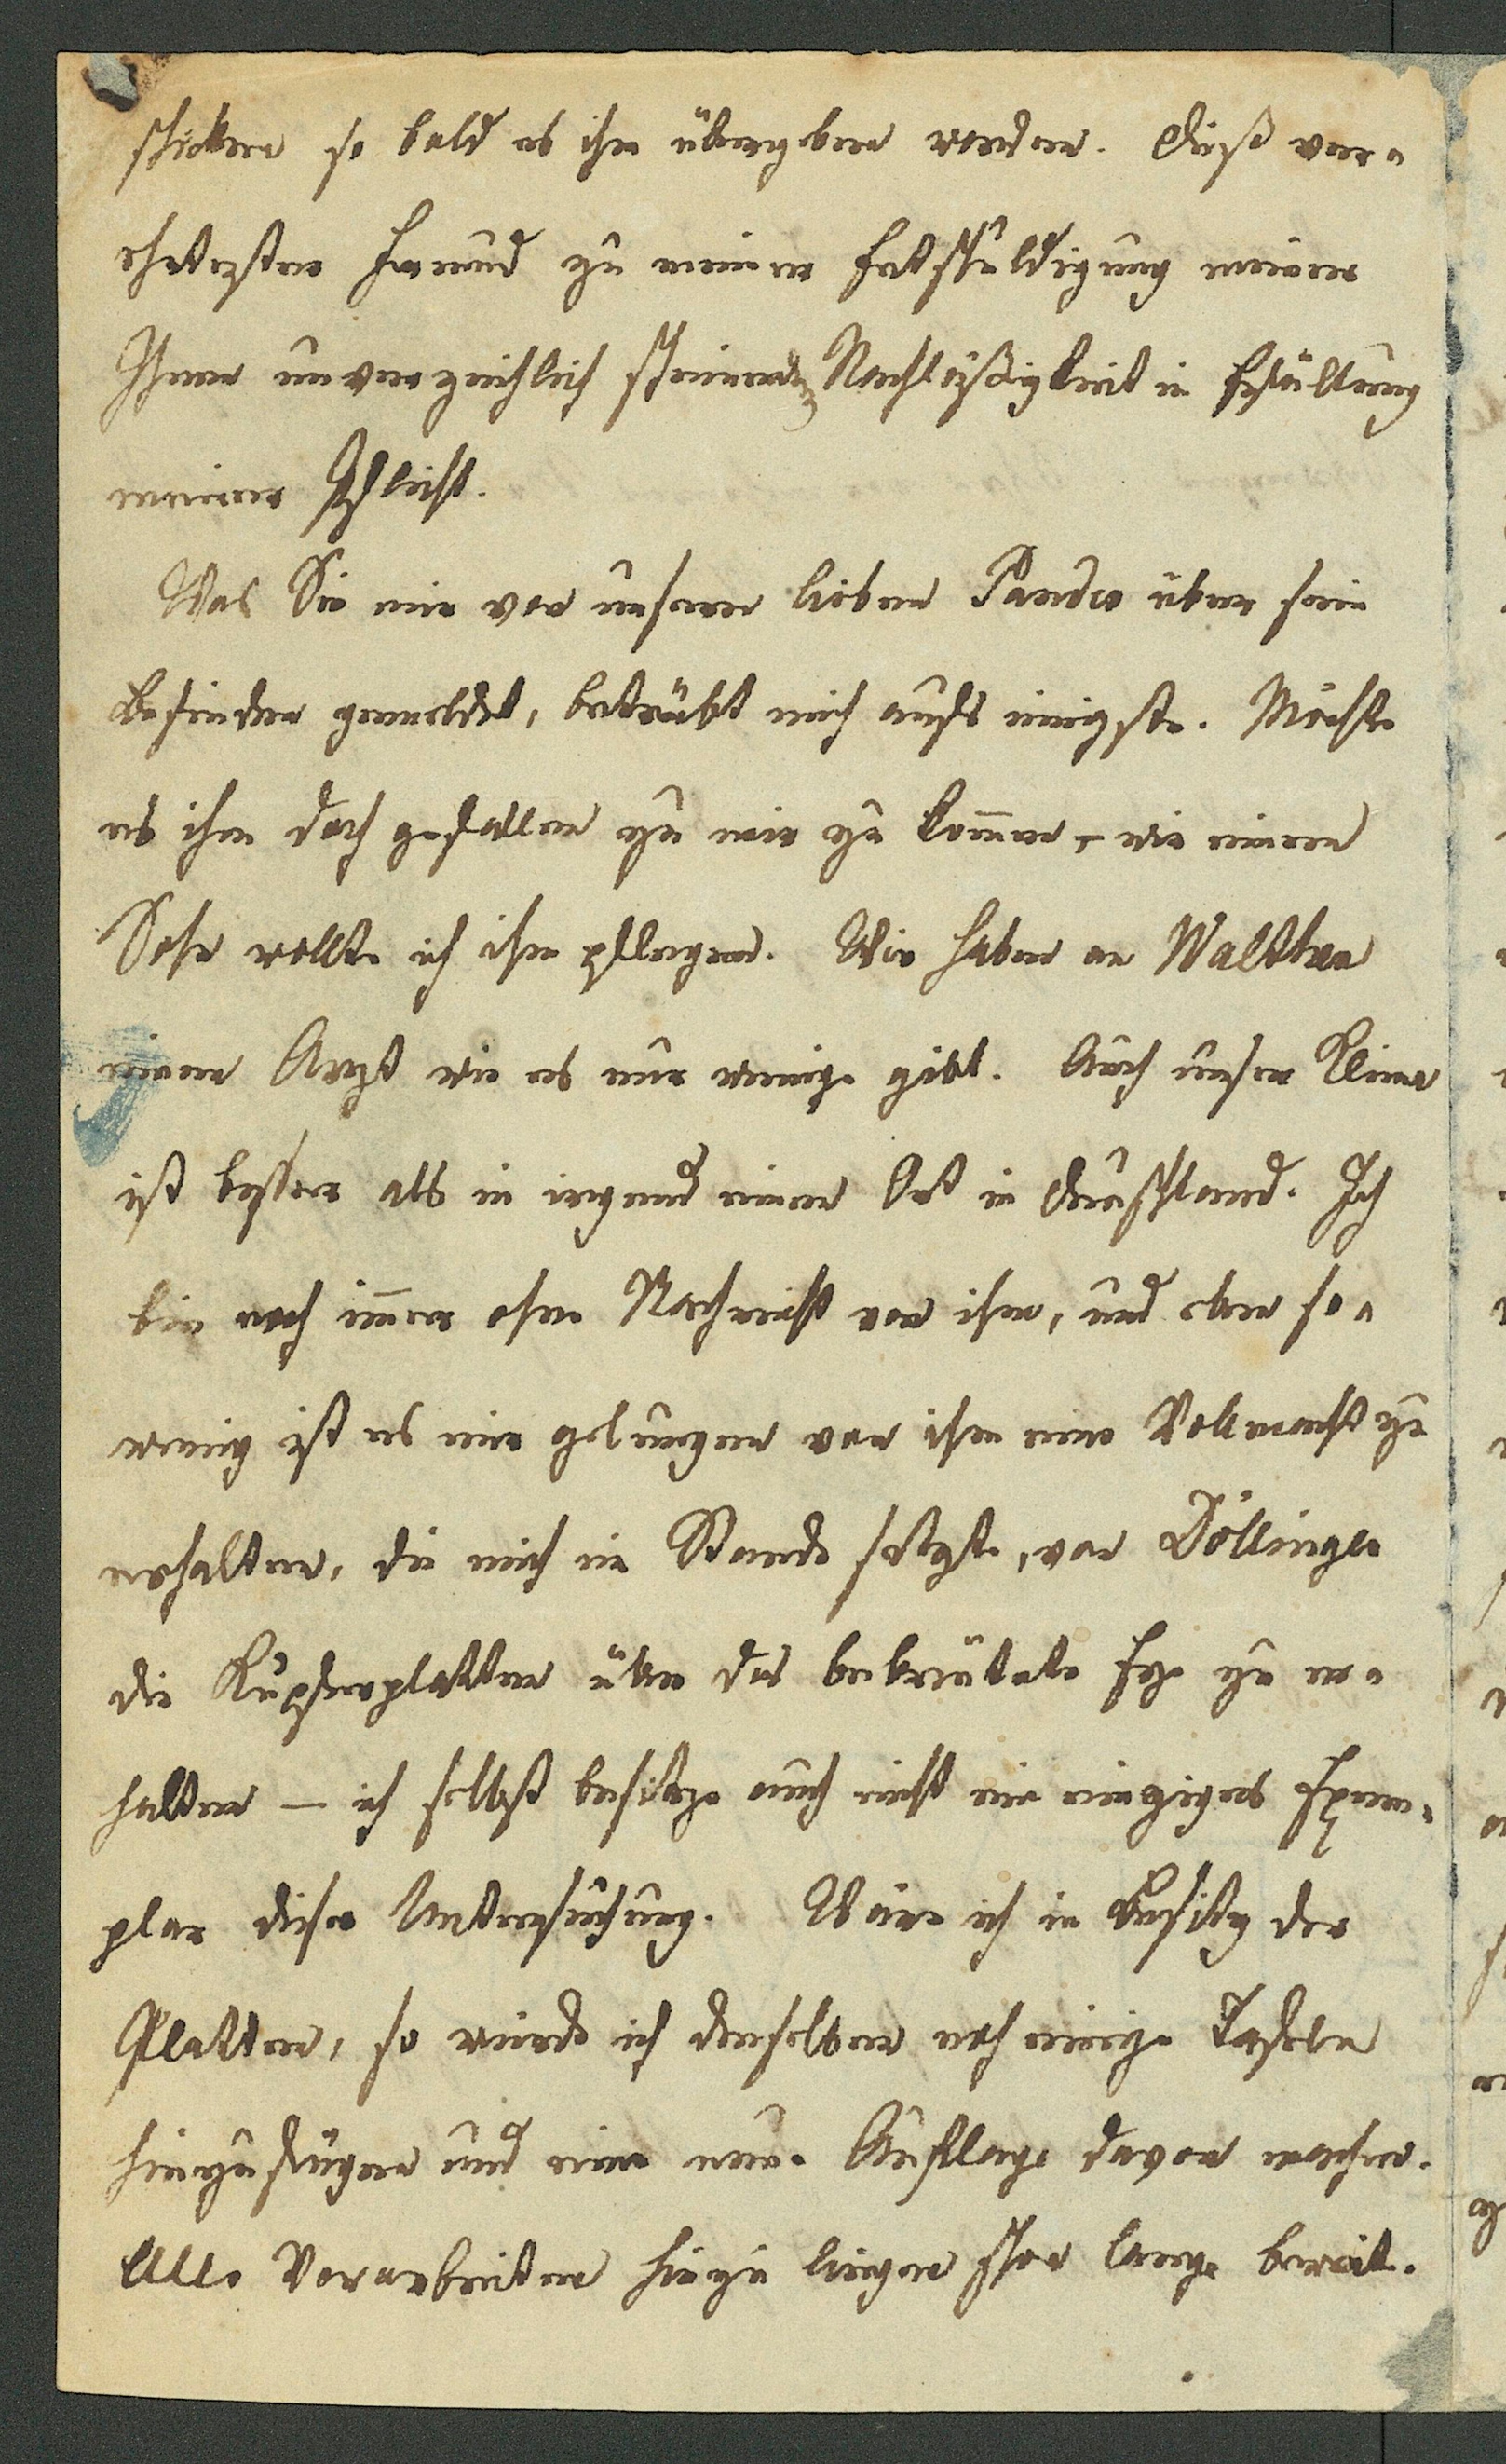 schicken so bald es ihm übergeben worden. Dieß ver-
ehrtester Freund zu meiner Entschuldigung meiner
Ihnen unverzeihlich scheinenden Nachläßigkeit in Erfüllung
meiner Pflicht.
Was Sie mir von unserm lieben Pander über sein
Befinden gemeldet, betrübt mich aufs innigste. Möchte
es ihm doch gefallen zu mir zu kommen, – wie einen
Sohn wollte ich ihn pflegen. Wir haben an Walther
einen Arzt wie es nur wenige gibt. Auch unser Klima
ist besser als in irgend einem Ort in Deutschland. Ich
bin noch immer ohne Nachricht von ihm, und eben so-
wenig ist es mir gelungen von ihm eine Vollmacht zu
erhalten, die mich in Stande setzte, von Döllinger
die Kupferplatten über das bebrütete Ey zu er-
halten – ich selbst besitze auch nicht ein einziges Exem-
plar dieser Untersuchung. Wäre ich in Besitz der
Platten, so würde ich denselben noch einige Tafeln
hinzufügen und eine neue Auflage davon machen.
Alle Vorarbeiten hiezu liegen schon lange bereit.